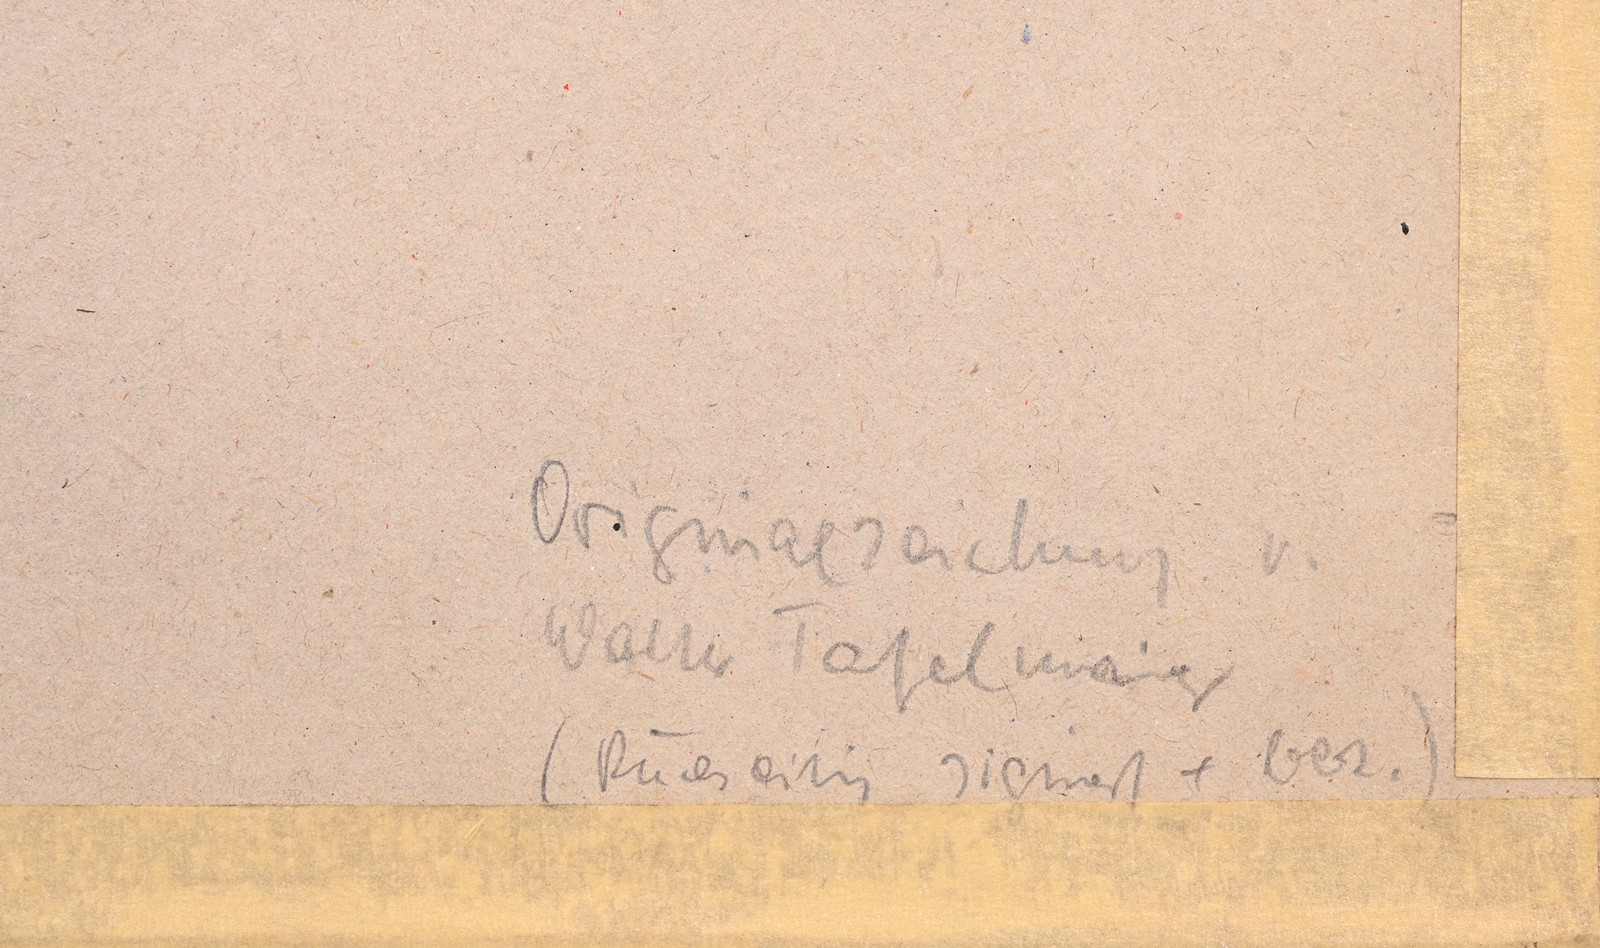 Originalzeichnung v.
Walter Tafelmaier
(Rückseitig signiert + bez.)